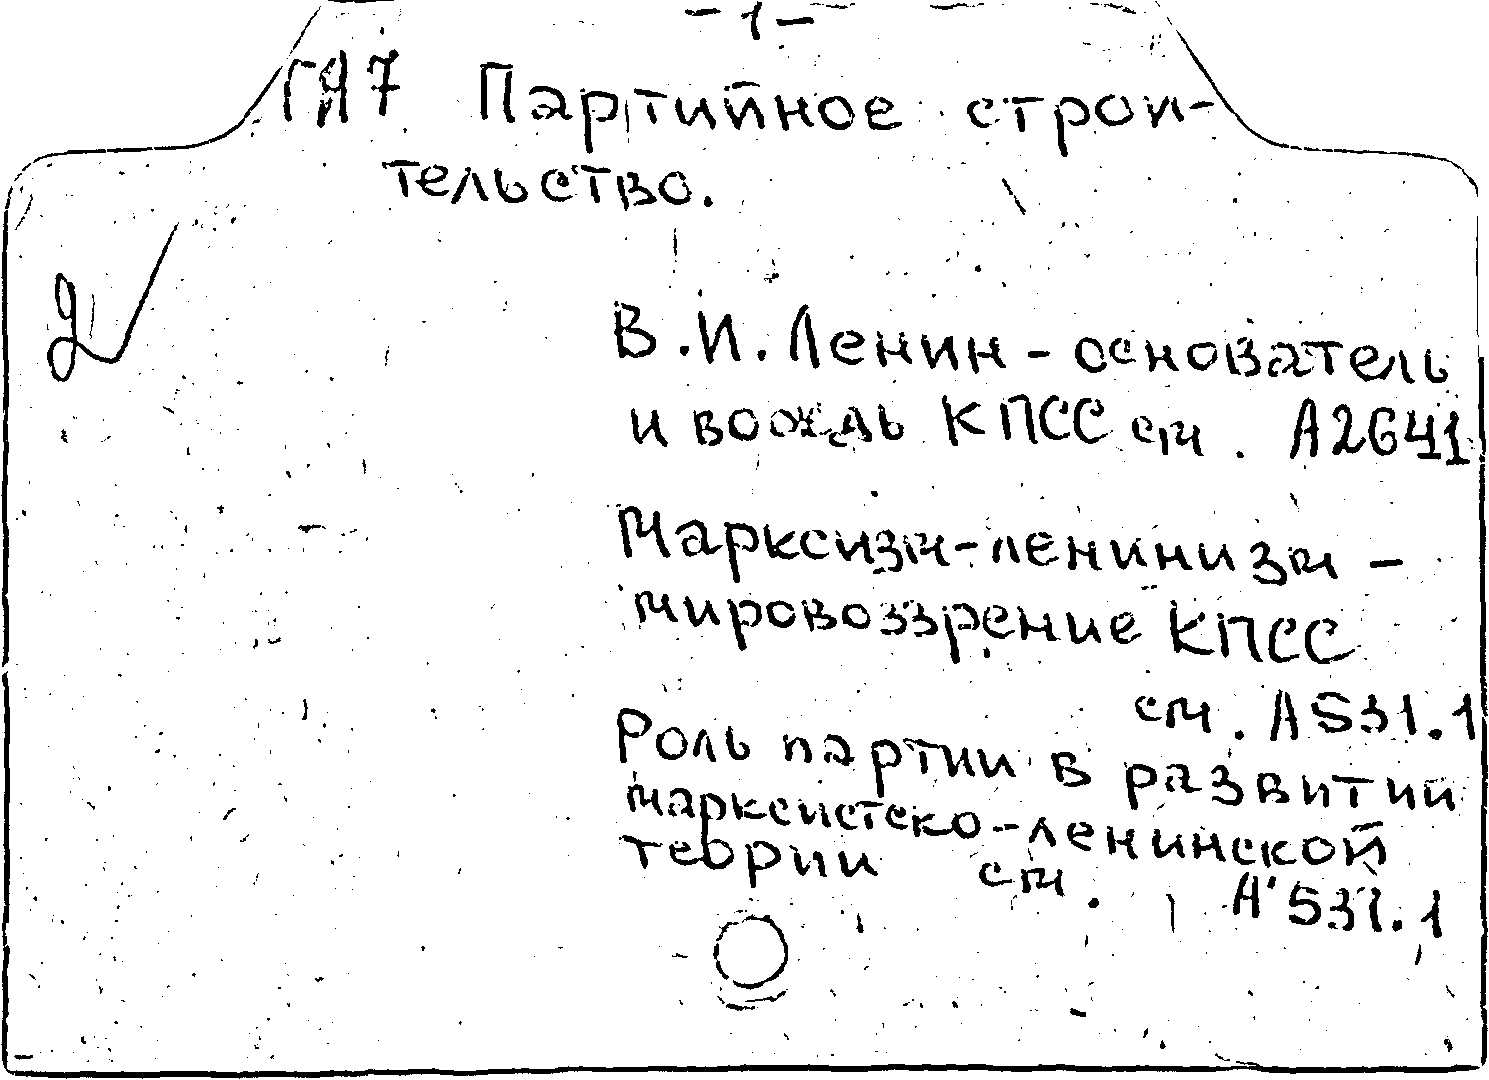 - 1 -
ГА7 Партийное строи-
тельство.
В.И.Ленин - основатель
и вождь КПСС см. А2641
Марксизм-ленинизм -
мировоззрение КПСС
см. А531.1
Роль партии в развитии
марксистско-ленинской
теории см. А531.1